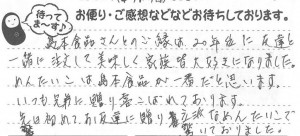 待ってま〜す♪
お便り・ご感想などなどお待ちしております。
島本食品さんとのご縁は、20年位前に友達と
一緒に注文して美味しく家族皆大好きになりました。
めんたいこは島本食品が一番だと思います。
いつも兄弟に贈り喜こばれております。
先日初めてお友達に贈り立派なめんたいこで
驚いておりました。